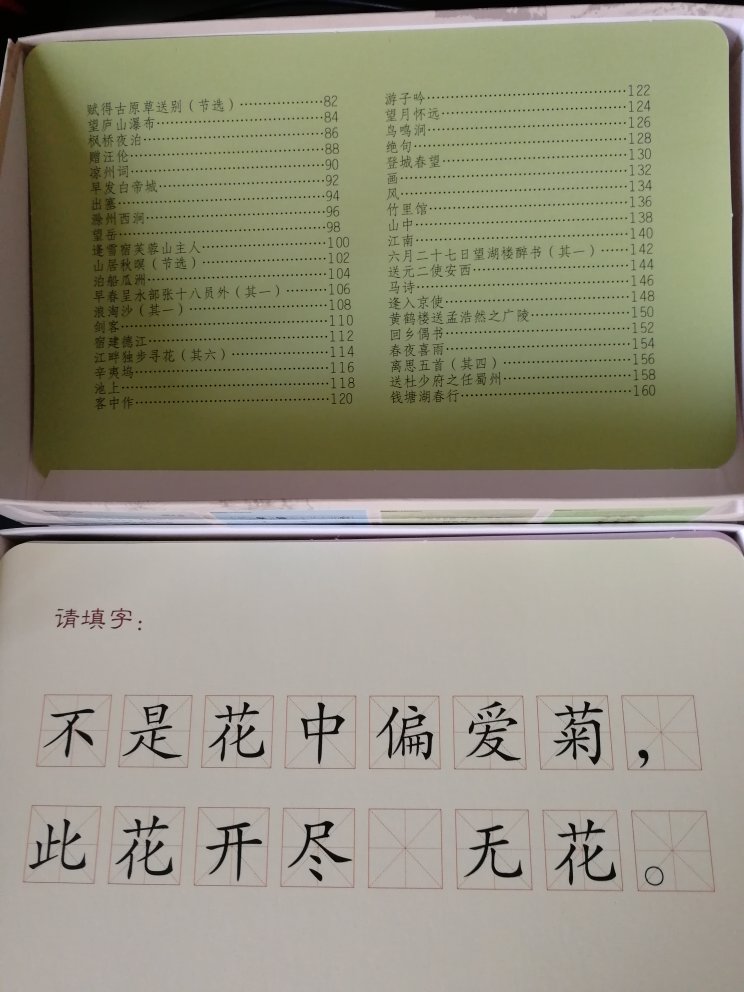 赋得古原草送别（节选）………………82
望庐山瀑布………………84
枫桥夜泊………………86
赠汪伦………………88
凉州词………………90
早发白帝城………………92
出塞………………94
滁州西涧………………96
望岳………………98
逢雪宿芙蓉山主人………………100
山居秋暝（节选）………………102
泊船瓜洲………………104
早春呈水部张十八员外（其一）………………106
浪淘沙（其一）………………108
剑客………………110
宿建德江………………112
江畔独步寻花（其六）………………114
辛夷坞………………116
池上………………118
客中作………………120
游子吟………………122
望月怀远………………124
鸟鸣涧………………126
绝句………………128
登城春望………………130
画………………132
风………………134
竹里馆………………136
山中………………138
江南………………140
六月二十七日望湖楼醉书（其一）………………142
送元二使安西………………144
马诗………………146
逢入京使………………148
黄鹤楼送孟浩然之广陵………………150
回乡偶书………………152
春夜喜雨………………154
离思五首（其四）………………156
送杜少府之任蜀州………………158
钱塘湖春行………………160
请填字：
不是花中偏爱菊，
此花开尽 无花。